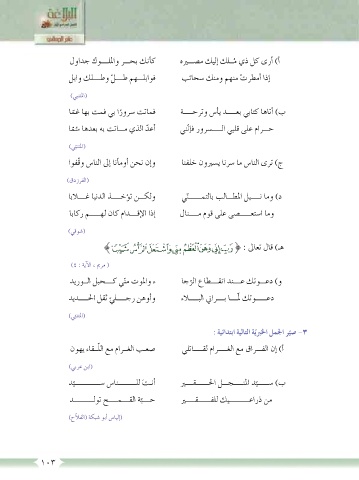 البلاغة
علم البيان
أ) أرى كل ذي مُلك إليك مصيره كأنك بحر والملوك جداول
إذا أمطرتْ منهم ومنك سحائب فوابلهم طلّ وطلّك وابل
(المتنبي)
ب) أتاها كتابي بعد يأس وترحة فماتت سرورًا بي فمت بها غما
حرام على قلبي السرور فإنّني أعدّ الذي ماتت به بعدها سُمّا
(المتنبي)
ج) ترى الناس ما سرنا يسيرون خلفنا وإن نحن أومأنا إلى الناس وقّفوا
(الفرزدق)
د) وما نيل المطالب بالتمنّي ولكن تؤخذ الدنيا غلابا
وما استعصى على قوم منال إذا الإقدام كان لهم ركابا
(شوقي)
هـ) قال تعالى : ﴿ رَبِّ إِنِّي وَهَنَ ٱلْعَظْمُ مِنِّي وَٱشْتَعَلَ ٱلرَّأْسُ شَيْبًا ﴾
( مريم ، الآية : ٤)
و) دعوتك عند انقطاع الرّجا ء والموت منّي كحبل الوريد
دعوتك لمّا براني البلاء وأوهن رجليّ ثقل الحديد
(المتنبي)
٣- صيّر الجمل الخبريّة التالية ابتدائية :
أ) إن الفراق مع الغرام لقاتلي صعب الغرام مع اللّقاء يهون
(ابن عربي)
ب) سيّد المنجل الحقير أنت للناس سيّد
من ذراعيك للفقير حبّة القمح تولد
(إلياس أبو شبكة (الفلاّح)
١٠٣